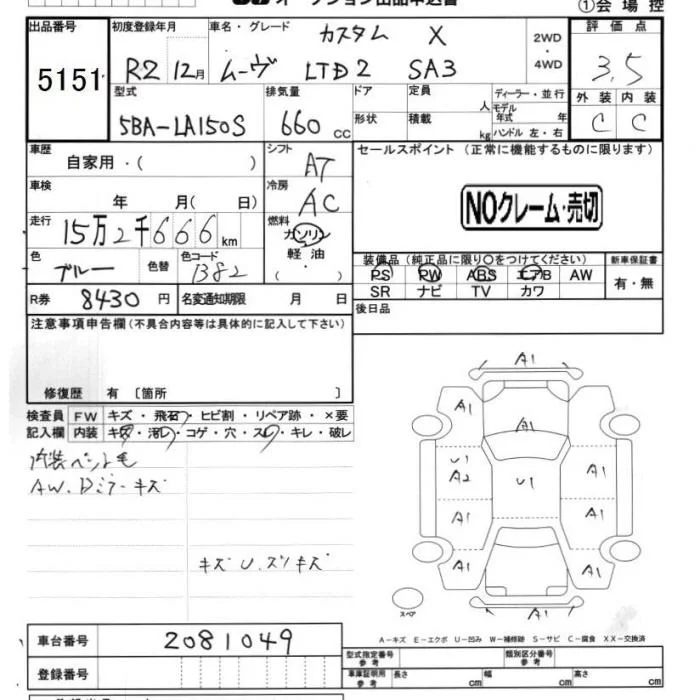 オークション出品申込書
①会場控
出品番号 初度登録年月 車名・グレード 評価点
5151 R2 12月 ムーヴ カスタム X LTD2 SA3 2WD・4WD 3.5
型式 排気量 ドア 定員 人 ディーラー・並行 外装 内装
5BA-LA150S 660 CC 形状 積載 kg モデル年式 年 ハンドル 左・右 C C
車歴 自家用・( ) シフト AT セールスポイント (正常に機能するものに限ります)
車検 年 月( 日) 冷房 AC
NOクレーム・売切
走行 15万2千666km 燃料 ガソリン 軽油 ( )
色 ブルー 色替 色コード 1382
装備品 (純正品に限り○をつけてください) 新車保証書
PS PW ABS エアB AW 有・無
SR ナビ TV カワ
R券 8430円 名変通知期限 月 日
後日品
注意事項申告欄(不具合内容等は具体的に記入して下さい)
修復歴 有 〔箇所 〕
検査員 FW キズ・飛石・ヒビ割・リペア跡・×要
記入欄 内装 キズ・汚レ・コゲ・穴・スレ・キレ・破レ
内装ペット毛
AW、Dミラーキズ
キズ U、スリキズ
A1
A1 A1
U1 A2 U1 A1
A1 A1
A1 A1
A1
スペア
A-キズ E-エクボ U-凹み W-補修跡 S-サビ C-腐食 XX-交換済
車台番号 2081049
型式指定番号 参考 類別区分番号 参考
登録番号
車庫証明用 参考 長さ cm 幅 cm 高さ cm